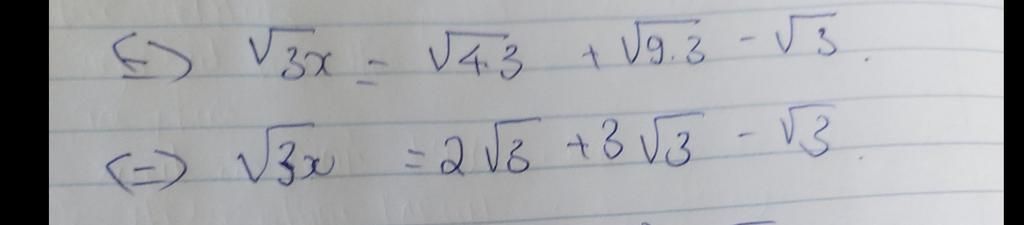 <=> √3x = √4.3 + √9.3 - √3.
<=> √3x = 2√3 + 3√3 - √3.